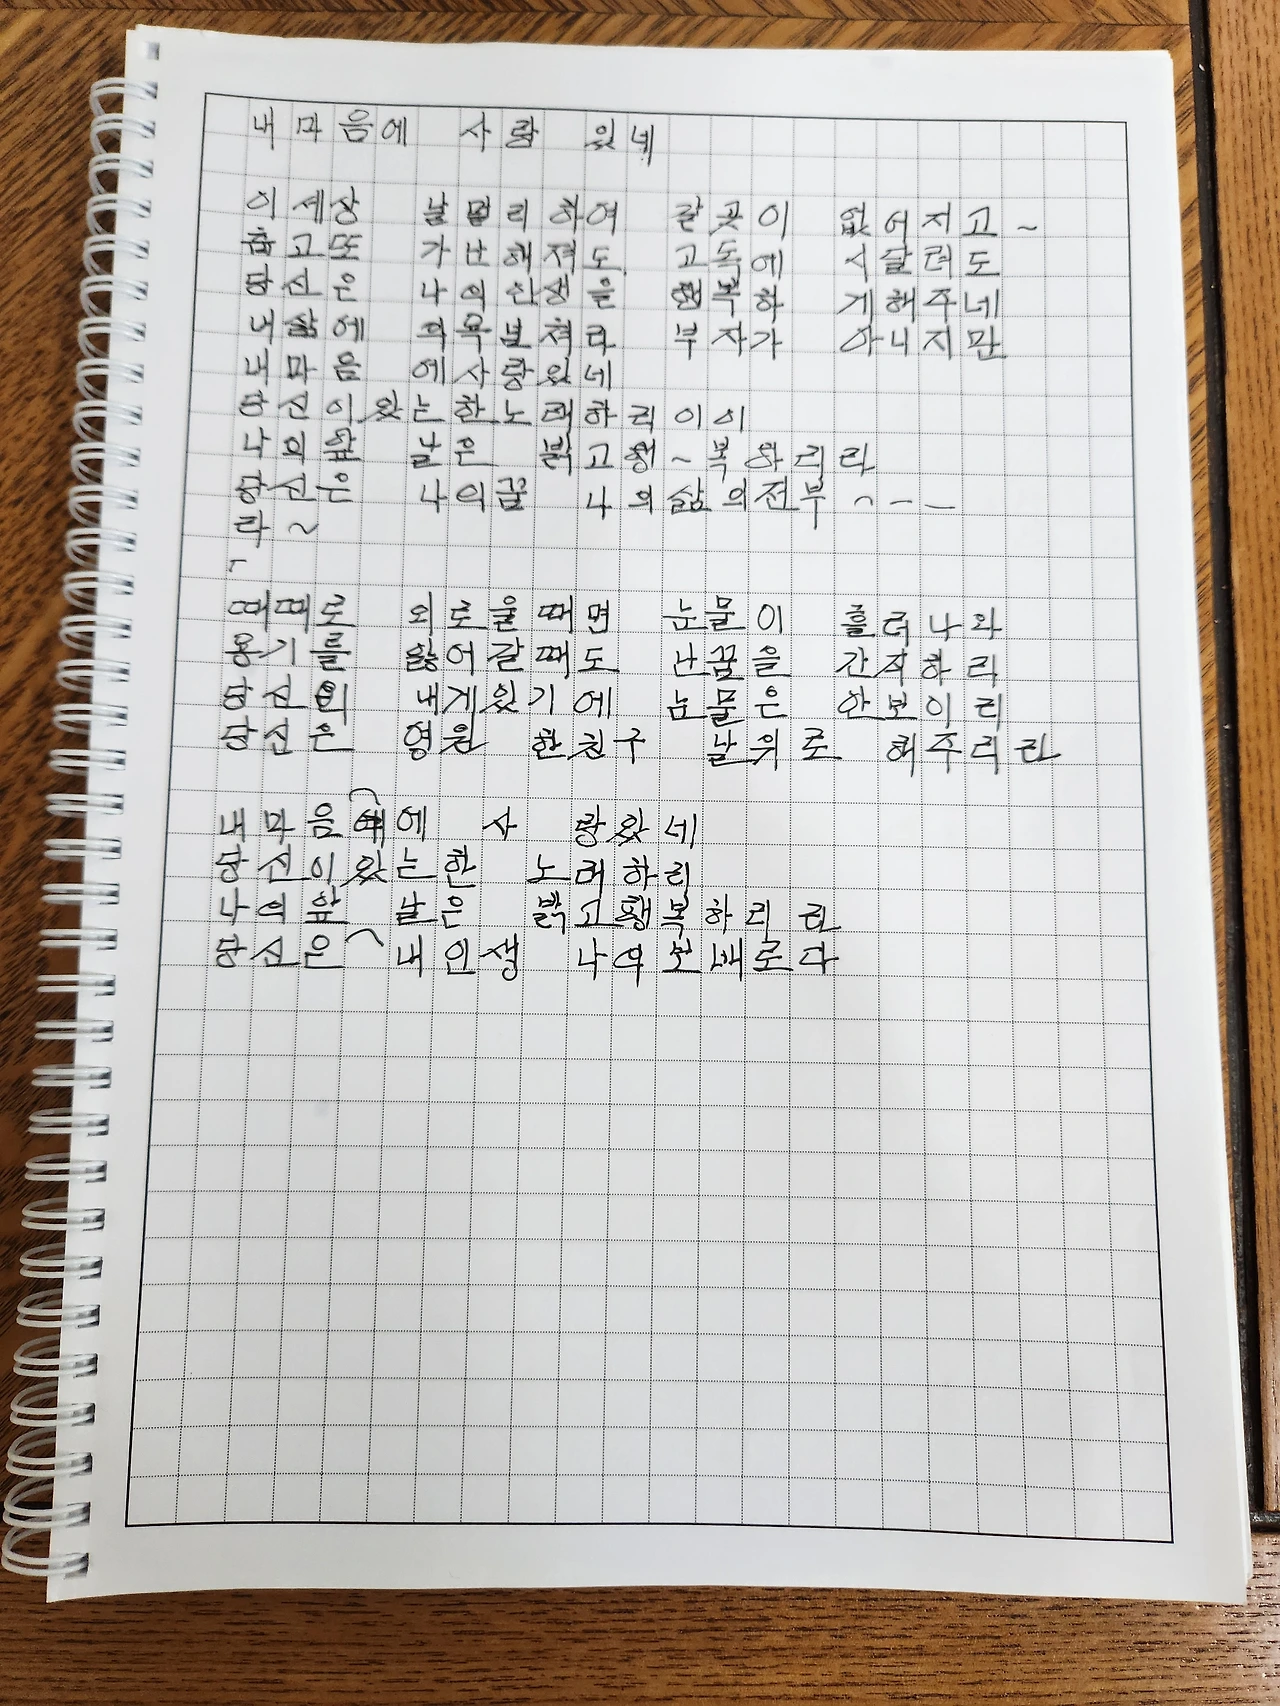 내마음에 사랑 있네
이세상 날멀리하여 갈곳이 없어지고~
춥고또 가난해져도 고독에 시달려도
당신은 나의인생을 행복하 게해주네
내삶에 부자가 아니지만
내마음 에사랑있네
당신이있는한노래하리이이
나의앞 날은 밝고행~복하리라
당신은 나의꿈 나의삶의전부~--
라~
때때로 외로울때면 눈물이 흘러나와
용기를 잃어갈때도 난꿈을 간직하리
당신이 내게있기에 눈물은 안보이리
당신은 영원 한친구 날위로 해주리라
내마음에 사 랑있네
당신이있는한 노래하리
나의앞 날은 밝고행복하리라
당신은 내인생 나의보배로다